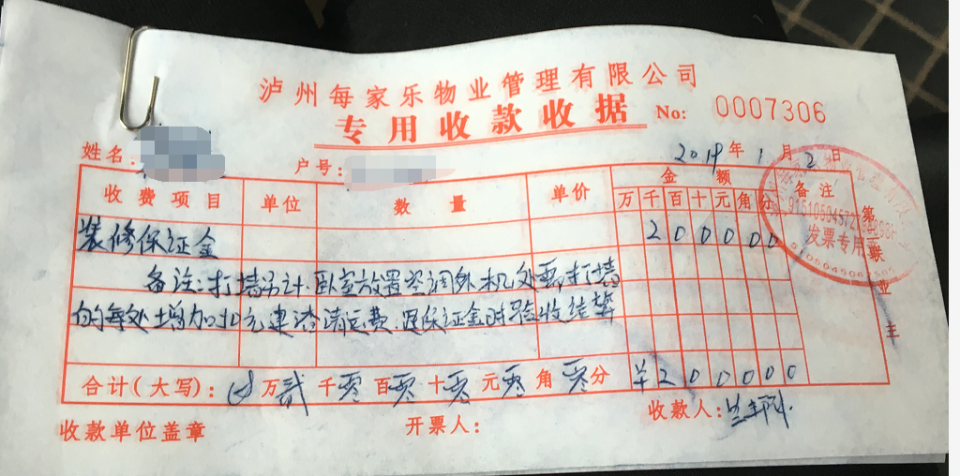 泸州每家乐物业管理有限公司
专用收款收据 No: 0007306
姓名: 户号:
2019年1月2日
收费项目 单位 数量 单价 金额 备注
万千百十元角分
装修保证金 200000
备注:打墙另计.卧室放置空调外机处要打墙
的每处增加 元建渣清运费.退保证金时验收结算
合计(大写): 万贰千零百零十零元零角零分 ¥200000
收款单位盖章 开票人: 收款人:
第二联
业主
发票专用